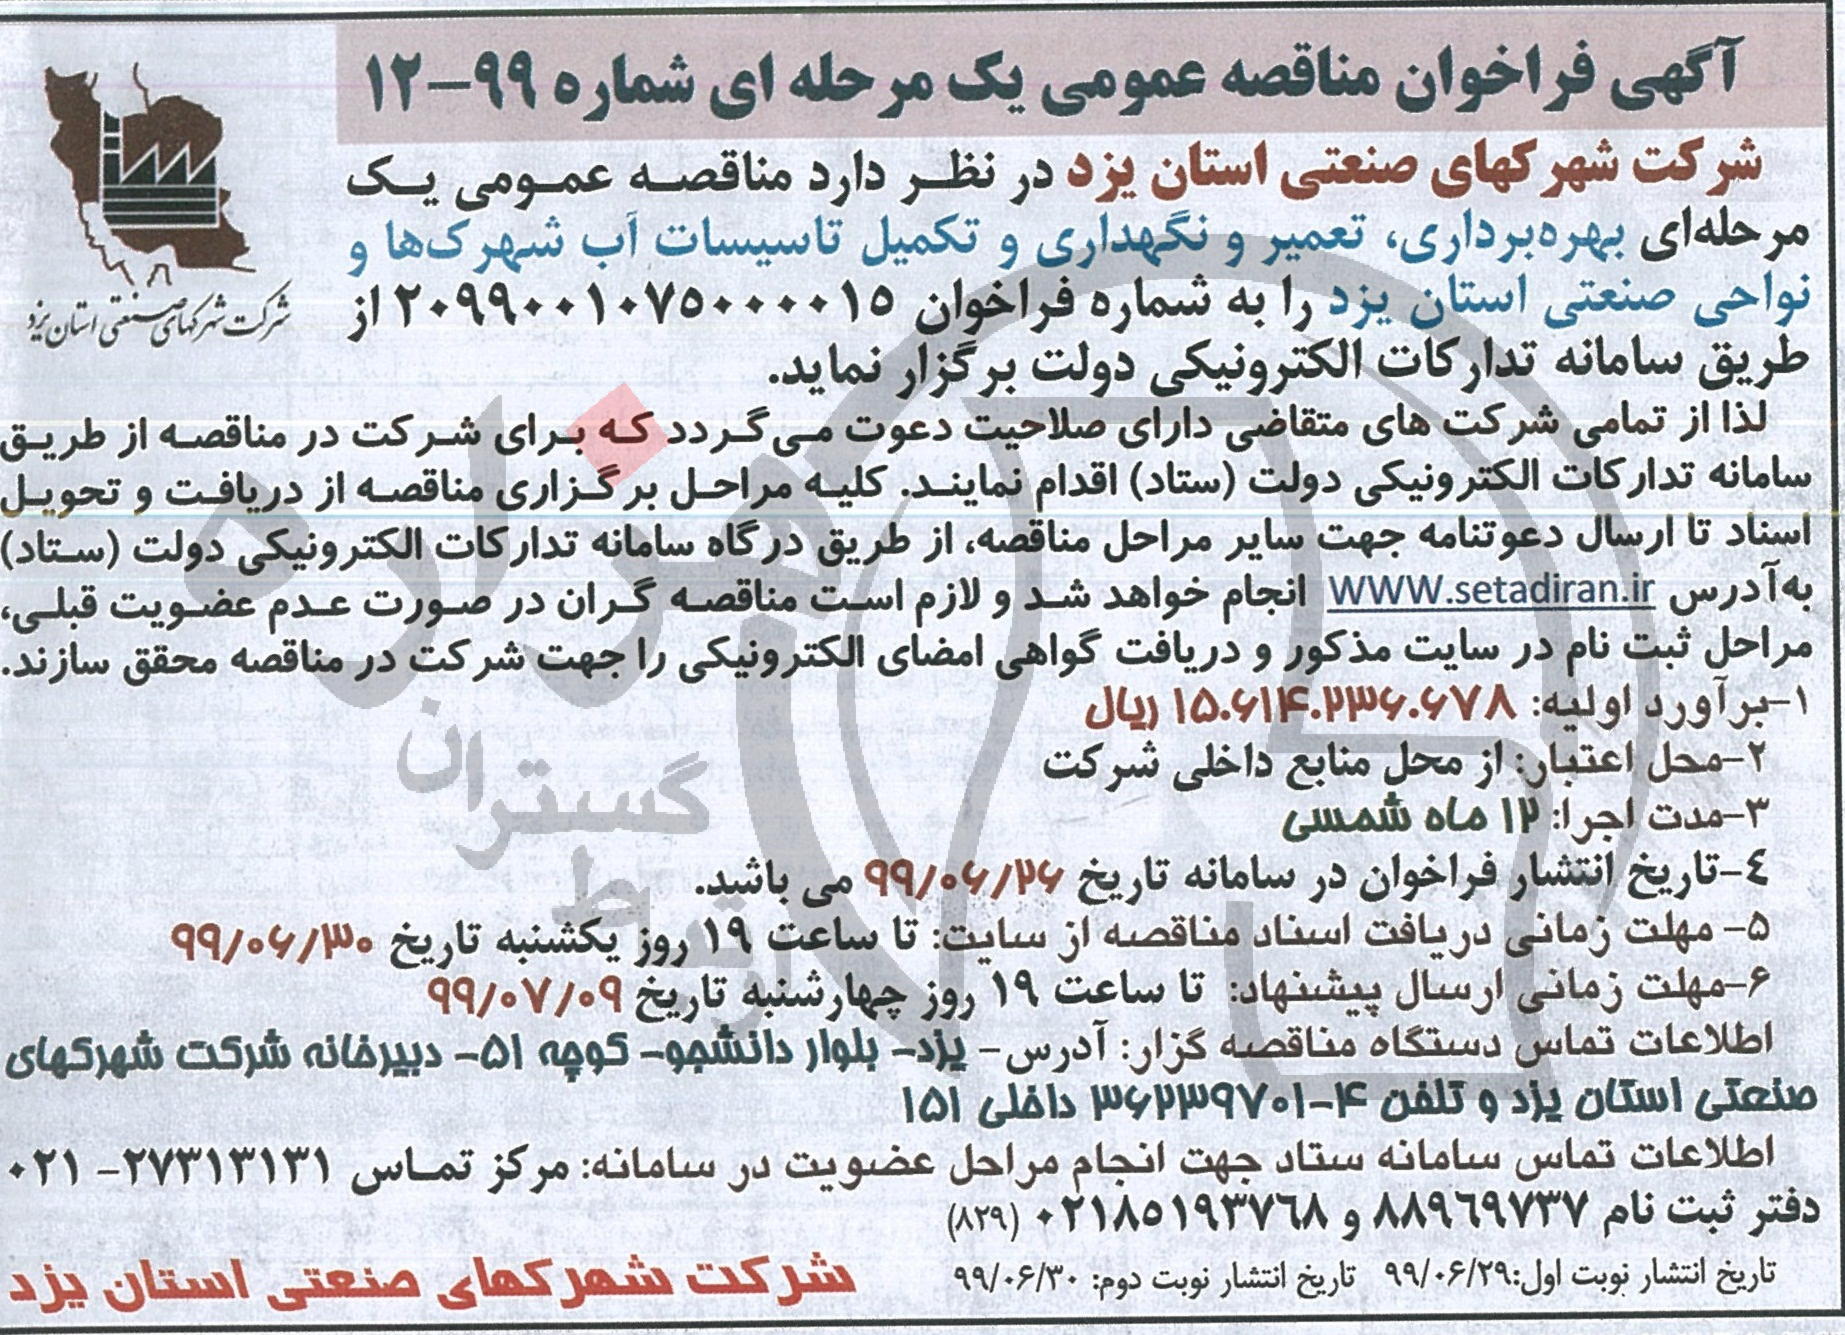 آگهی فراخوان مناقصه عمومی یک مرحله ای شماره ۹۹-۱۲
شرکت شهرکهای صنعتی استان یزد در نظر دارد مناقصه عمومی یک
مرحله‌ای بهره‌برداری، تعمیر و نگهداری و تکمیل تاسیسات آب شهرک‌ها و
نواحی صنعتی استان یزد را به شماره فراخوان ۲۰۹۹۰۰۱۰۷۵۰۰۰۰۱۵ از
طریق سامانه تدارکات الکترونیکی دولت برگزار نماید.
شرکت شهرکهای صنعتی استان یزد
لذا از تمامی شرکت های متقاضی دارای صلاحیت دعوت می‌گردد که برای شرکت در مناقصه از طریق
سامانه تدارکات الکترونیکی دولت (ستاد) اقدام نمایند. کلیه مراحل برگزاری مناقصه از دریافت و تحویل
اسناد تا ارسال دعوتنامه جهت سایر مراحل مناقصه، از طریق درگاه سامانه تدارکات الکترونیکی دولت (ستاد)
به‌آدرس WWW.setadiran.ir انجام خواهد شد و لازم است مناقصه گران در صورت عدم عضویت قبلی،
مراحل ثبت نام در سایت مذکور و دریافت گواهی امضای الکترونیکی را جهت شرکت در مناقصه محقق سازند.
۱-برآورد اولیه: ۱۵.۶۱۴.۲۳۶.۶۷۸ ریال
۲-محل اعتبار: از محل منابع داخلی شرکت
۳-مدت اجرا: ۱۲ ماه شمسی
۴-تاریخ انتشار فراخوان در سامانه تاریخ ۹۹/۰۶/۲۶ می باشد.
۵- مهلت زمانی دریافت اسناد مناقصه از سایت: تا ساعت ۱۹ روز یکشنبه تاریخ ۹۹/۰۶/۳۰
۶-مهلت زمانی ارسال پیشنهاد: تا ساعت ۱۹ روز چهارشنبه تاریخ ۹۹/۰۷/۰۹
اطلاعات تماس دستگاه مناقصه گزار: آدرس- یزد- بلوار دانشجو- کوچه ۵۱- دبیرخانه شرکت شهرکهای
صنعتی استان یزد و تلفن ۴-۳۶۲۳۹۷۰۱ داخلی ۱۵۱
اطلاعات تماس سامانه ستاد جهت انجام مراحل عضویت در سامانه: مرکز تماس ۲۷۳۱۳۱۳۱- ۰۲۱
دفتر ثبت نام ۸۸۹۶۹۷۳۷ و ۰۲۱۸۵۱۹۳۷۶۸ (۸۲۹)
تاریخ انتشار نوبت اول:۹۹/۰۶/۲۹ تاریخ انتشار نوبت دوم: ۹۹/۰۶/۳۰
شرکت شهرکهای صنعتی استان یزد
هزاره
گستران